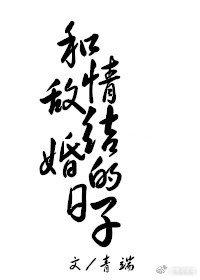 和情
敌结
婚的
日子
文/青端